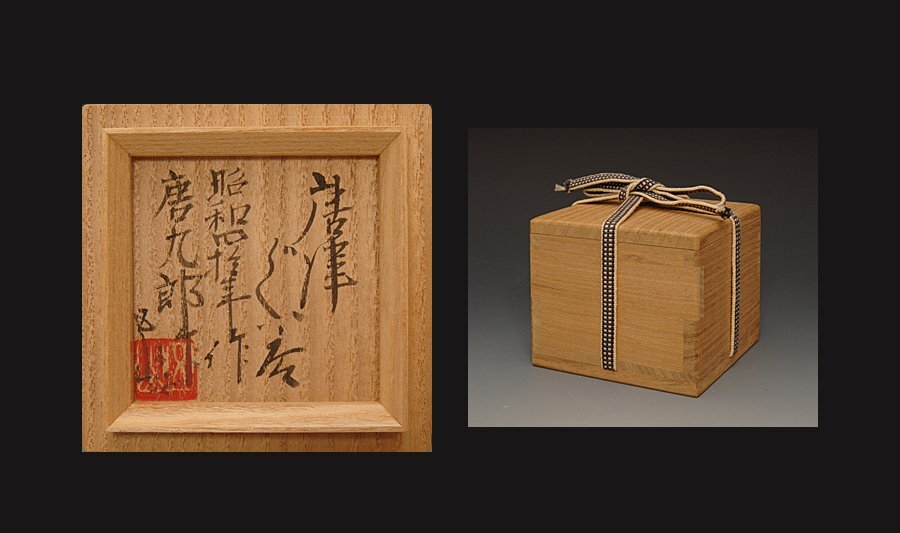 唐津
ぐい呑
昭和四拾年作
唐九郎